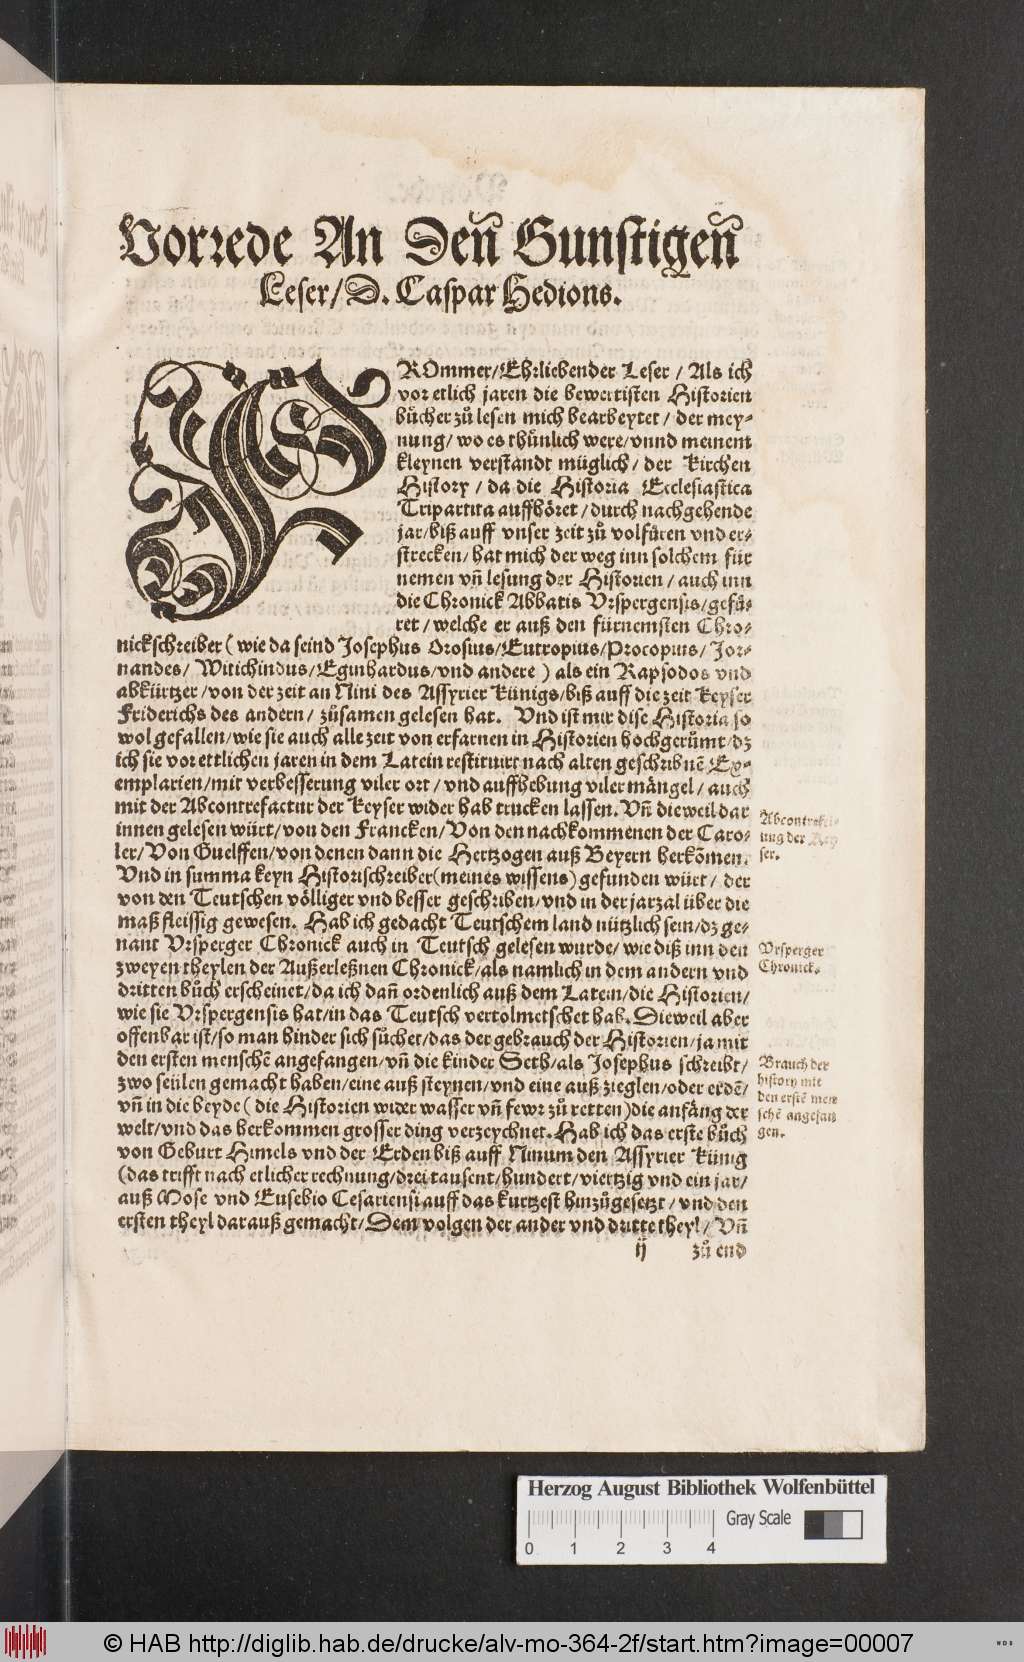 Vorrede An Den Gunstigen
Leser/ D. Caspar Hedions.
FROmmer/Ehrliebender Leser / Als ich
vor etlich jaren die bewertisten Historien
bůcher zů lesen mich bearbeytet / der mey-
nung/ wo es thůnlich were/vnnd meinem
kleynen verstandt müglich/ der Kirchen
History / da die Historia Ecclesiastica
Tripartita auffhöret/durch nachgehende
jar/biß auff vnser zeit zů volfüren vnd er-
strecken/ hat mich der weg inn solchem für
nemen vñ lesung der Historien / auch inn
die Chronick Abbatis Vrspergensis/gefü-
ret / welche er auß den fürnemsten Chro-
nickschreiber ( wie da seind Josephus Orosius/Eutropius/Procopius/ Jor-
nandes/ Witichindus/Eginhardus/vnd andere ) als ein Rapsodos vnd
abkürtzer/von der zeit an Nini des Assyrier Künigs/biß auff die zeit Keyser
Friderichs des andern / zůsamen gelesen hat. Vnd ist mir dise Historia so
wol gefallen/wie sie auch alle zeit von erfarnen in Historien hochgerůmt/dz
ich sie vor ettlichen jaren in dem Latein restituirt nach alten geschribnē Ex-
emplarien/mit verbesserung viler ort / vnd auffhebung viler mängel / auch
mit der Abcontrefactur der Keyser wider hab trucken lassen. Vñ dieweil dar
innen gelesen würt/von den Francken/Von den nachkommenen der Caro-
ler/Von Guelffen/von denen dann die Hertzogen auß Beyern herkōmen.
Vnd in summa keyn Historischreiber(meines wissens)gefunden würt / der
von den Teutschen völliger vnd besser geschriben/vnd in der jarzal über die
maß fleissig gewesen. Hab ich gedacht Teutschem land nützlich sein/dz ge-
nant Vrsperger Chronick auch in Teutsch gelesen wurde/ wie diß inn den
zweyen theylen der Außerleßnen Chronick/als namlich in dem andern vnd
dritten bůch erscheinet/da ich dañ ordenlich auß dem Latein/die Historien/
wie sie Vrspergensis hat/in das Teutsch vertolmetschet hab. Dieweil aber
offenbar ist/so man hinder sich sůchet/das der gebrauch der Historien/ja mit
den ersten menschē angefangen/vñ die kinder Seth/als Josephus schreibt/
zwo seülen gemacht haben/eine auß steynen/vnd eine auß zieglen/oder erdē/
vñ in die beyde ( die Historien wider wasser vñ fewr zů retten )die anfäng der
welt/vnd das herkommen grosser ding verzeychnet. Hab ich das erste bůch
von Geburt Himels vnd der Erden biß auff Ninum den Assyrier Künig
(das trifft nach etlicher rechnung/drei tausent/hundert/viertzig vnd ein jar/
auß Mose vnd Eusebio Cesariensi auff das kurtzest hinzůgesetzt / vnd den
ersten theyl darauß gemacht/Dem volgen der ander vnd dritte theyl/ Vñ
ij zů end
Abcontrefei-
ung der Key
ser.
Vrsperger
Chronick.
Brauch der
history mit
den erstē men
schē angefan
gen.
Herzog August Bibliothek Wolfenbüttel
Gray Scale
0 1 2 3 4
© HAB http://diglib.hab.de/drucke/alv-mo-364-2f/start.htm?image=00007